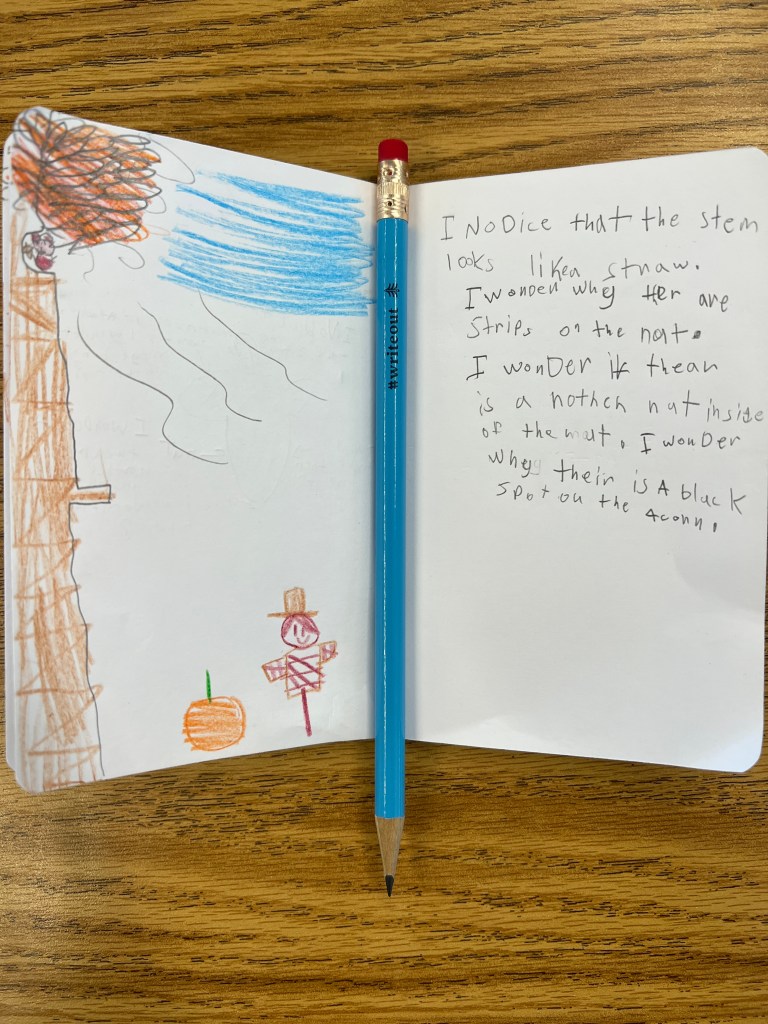 #writeout
I NoDice that the stem
looks likea straw.
I wonder whey ther are
Strips on the nat.
I wonDer if thear
is a nothen nut inside
of the nut. I wonDer
whey their is A black
spot on the Aconn.